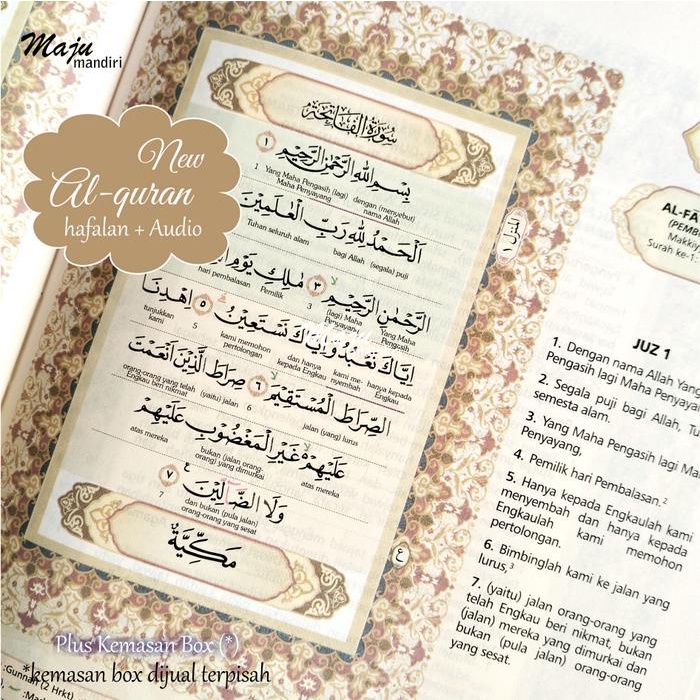 Maju
mandiri
New
Al-quran
hafalan + Audio
سُورَةُ الْفَاتِحَةِ
بِسْمِ اللّٰهِ الرَّحْمٰنِ الرَّحِيْمِ ١
dengan (menyebut) nama Allah
Yang Maha Pengasih (lagi) Maha Penyayang
1
اَلْحَمْدُ لِلّٰهِ رَبِّ الْعٰلَمِيْنَ
(segala) puji
bagi Allah
Tuhan seluruh alam
الرَّحْمٰنِ الرَّحِيْمِ ٣ مٰلِكِ يَوْمِ
Yang Maha Pengasih
(lagi) Maha Penyayang
3
Pemilik
hari pembalasan
اِيَّاكَ نَعْبُدُ وَاِيَّاكَ نَسْتَعِيْنُ ٥ اِهْدِنَا
hanya kepada Engkau
kami me-nyembah
dan hanya kepada Engkau
kami memohon pertolongan
5
tunjukkan kami
الصِّرَاطَ الْمُسْتَقِيْمَ ٦ صِرَاطَ الَّذِيْنَ اَنْعَمْتَ
jalan (yang) lurus
6
(yaitu) jalan
orang-orang yang telah Engkau beri nikmat
عَلَيْهِمْ غَيْرِ الْمَغْضُوْبِ عَلَيْهِمْ
atas mereka
bukan (jalan orang-orang) yang dimurkai
atas mereka
وَلَا الضَّاۤلِّيْنَ ٧
dan bukan (pula jalan) orang-orang yang sesat
7
مَكِّيَّةٌ
ع
المنزل ١
AL-FĀ
(PEMB
Makkiy
Surah ke-1:
JUZ 1
1. Dengan nama Allah Yang
Pengasih lagi Maha Penyaya
2. Segala puji bagi Allah, Tu
semesta alam.
3. Yang Maha Pengasih lagi Ma
Penyayang,
4. Pemilik hari Pembalasan.²
5. Hanya kepada Engkaulah kami
menyembah dan hanya kepada
Engkaulah kami memohon
pertolongan.
6. Bimbinglah kami ke jalan yang
lurus,³
7. (yaitu) jalan orang-orang yang
telah Engkau beri nikmat, bukan
(jalan) mereka yang dimurkai dan
bukan (pula jalan) orang-orang
yang sesat.
Plus Kemasan Box (*)
*kemasan box dijual terpisah
:Gunnah (2 Hrkt)